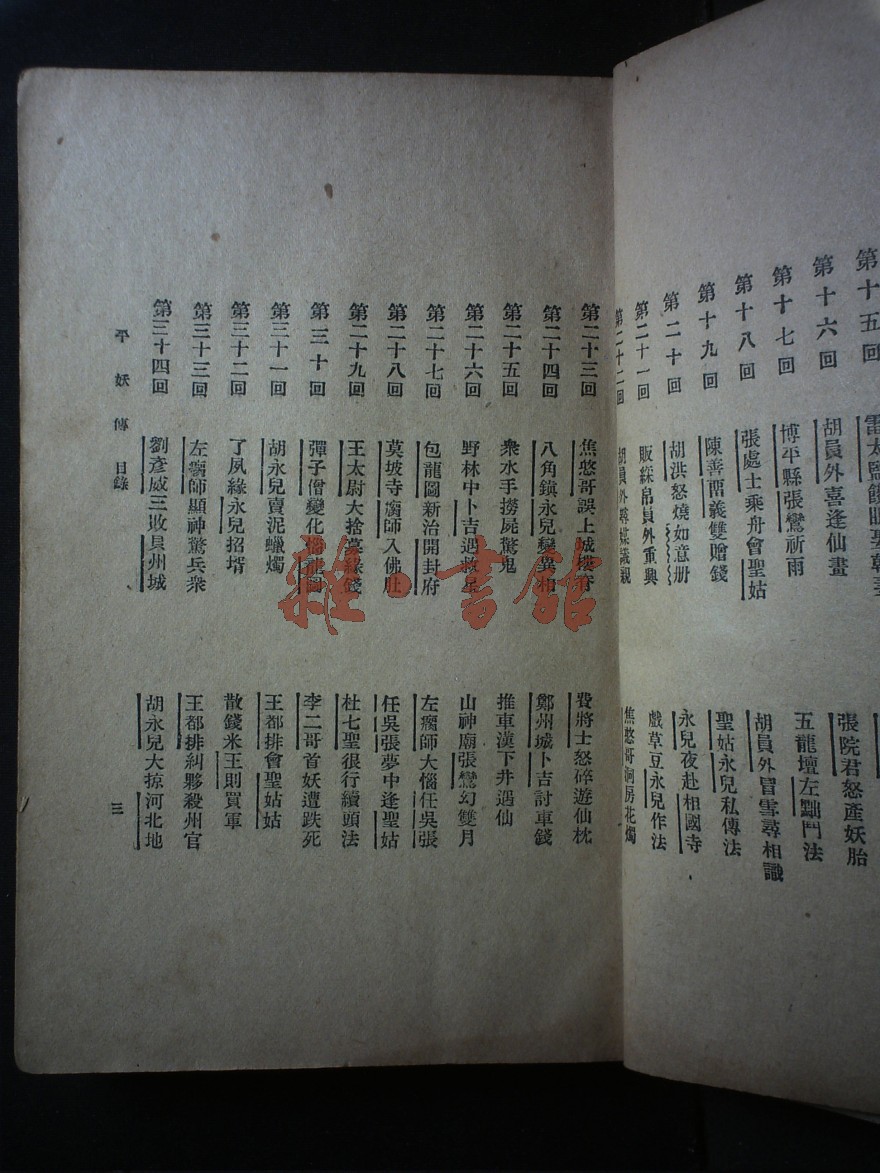 第十五回 張院君怒產妖胎
第十六回 胡員外喜逢仙畫 五龍壇左黜鬥法
第十七回 博平縣張鸞祈雨 胡員外冒雪尋相識
第十八回 張處士乘舟會聖姑 聖姑永兒私傳法
第十九回 陳善留義雙贈錢 永兒夜赴相國寺
第二十回 胡洪怒燒如意册 戲草豆永兒作法
第二十一回 販綵帛員外重興
第二十二回 胡員外尋媒議親 焦憨哥洞房花燭
第二十三回 焦憨哥誤上城樓脊 費將士怒碎遊仙枕
第二十四回 八角鎮永兒變異相 鄭州城卜吉討車錢
第二十五回 衆水手撈屍驚鬼 推車漢下井遇仙
第二十六回 野林中卜吉遇救星 山神廟張鸞幻雙月
第二十七回 包龍圖新治開封府 左瘸師大惱任吳張
第二十八回 莫坡寺瘸師入佛肚 任吳張夢中逢聖姑
第二十九回 王太尉大捨募緣錢 杜七聖很行續頭法
第三十回 彈子僧變化惱龍圖 李二哥首妖遭跌死
第三十一回 胡永兒賣泥蠟燭 王都排會聖姑姑
第三十二回 了夙緣永兒招壻 散錢米王則買軍
第三十三回 左瘸師顯神驚兵衆 王都排糾夥殺州官
第三十四回 劉彥威三敗貝州城 胡永兒大掠河北地
平妖傳 目錄 三
雜·書館